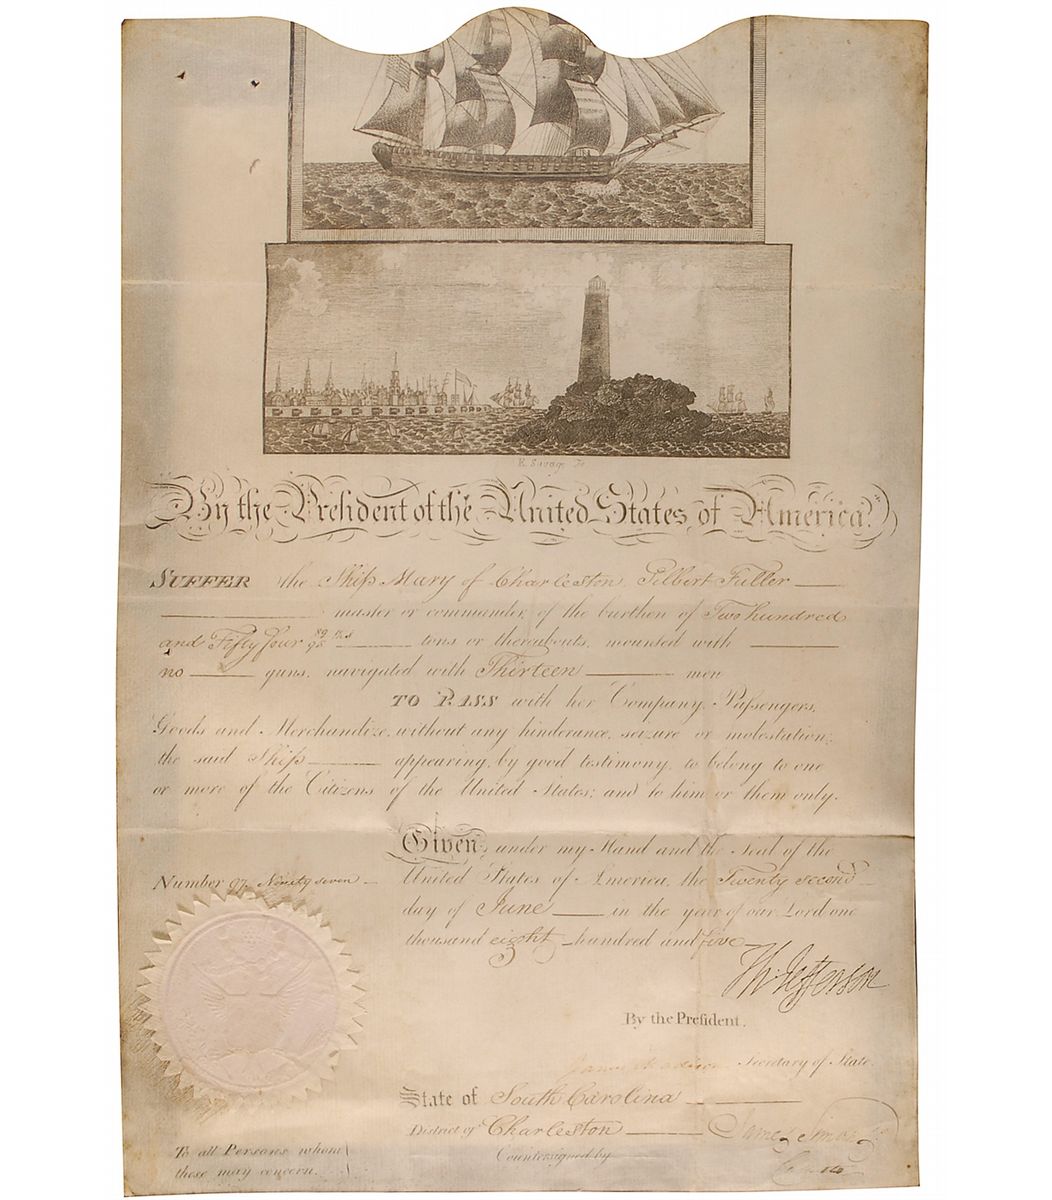 E. Savage
By the President of the United States of America.
SUFFER the Ship Mary of Charleston, Gilbert Fuller
master or commander, of the burthen of Two hundred
and Fifty four 89/95 ths tons or thereabouts, mounted with
no guns, navigated with Thirteen men
TO PASS with her Company, Passengers,
Goods and Merchandize, without any hinderance, seizure or molestation;
the said Ship appearing, by good testimony, to belong to one
or more of the Citizens of the United States; and to him or them only.
Given, under my Hand and the Seal of the
Number 97 Ninety seven
United States of America, the Twenty second
day of June in the year of our Lord one
thousand eight hundred and five
Th: Jefferson
By the President,
James Madison Secretary of State.
State of South Carolina
District of Charleston
James Simons
Countersigned by
To all Persons whom
these may concern.